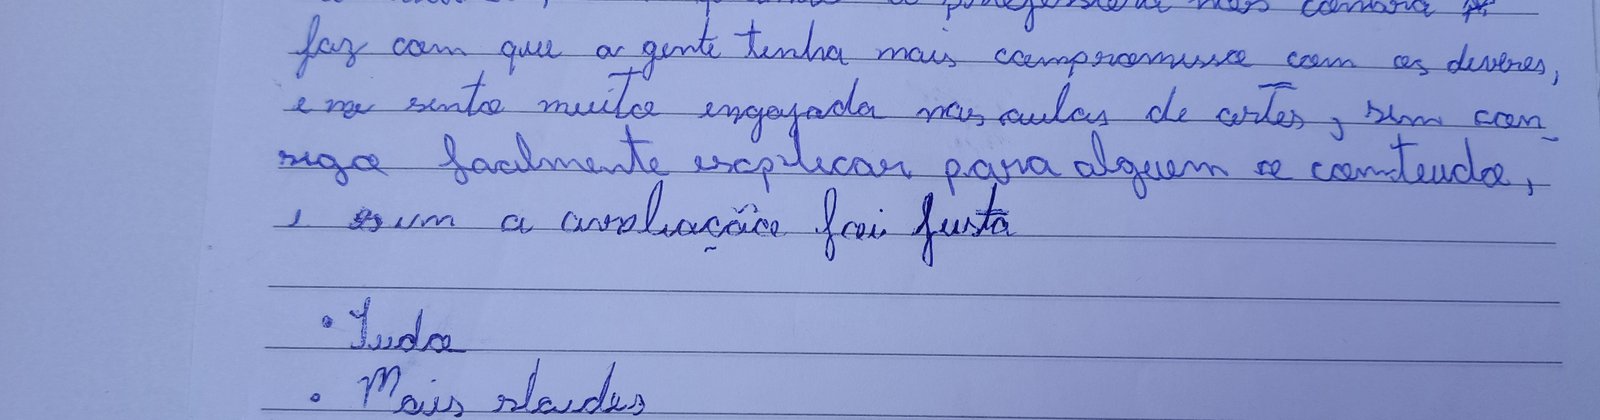 professora nos cobra
faz com que a gente tenha mais compromisso com os deveres,
e me sinto muito engajada nas aulas de artes, sim con-
sigo facilmente explicar para alguem o conteudo,
e sim a avaliação foi justa
• Tudo
• Mais slaides